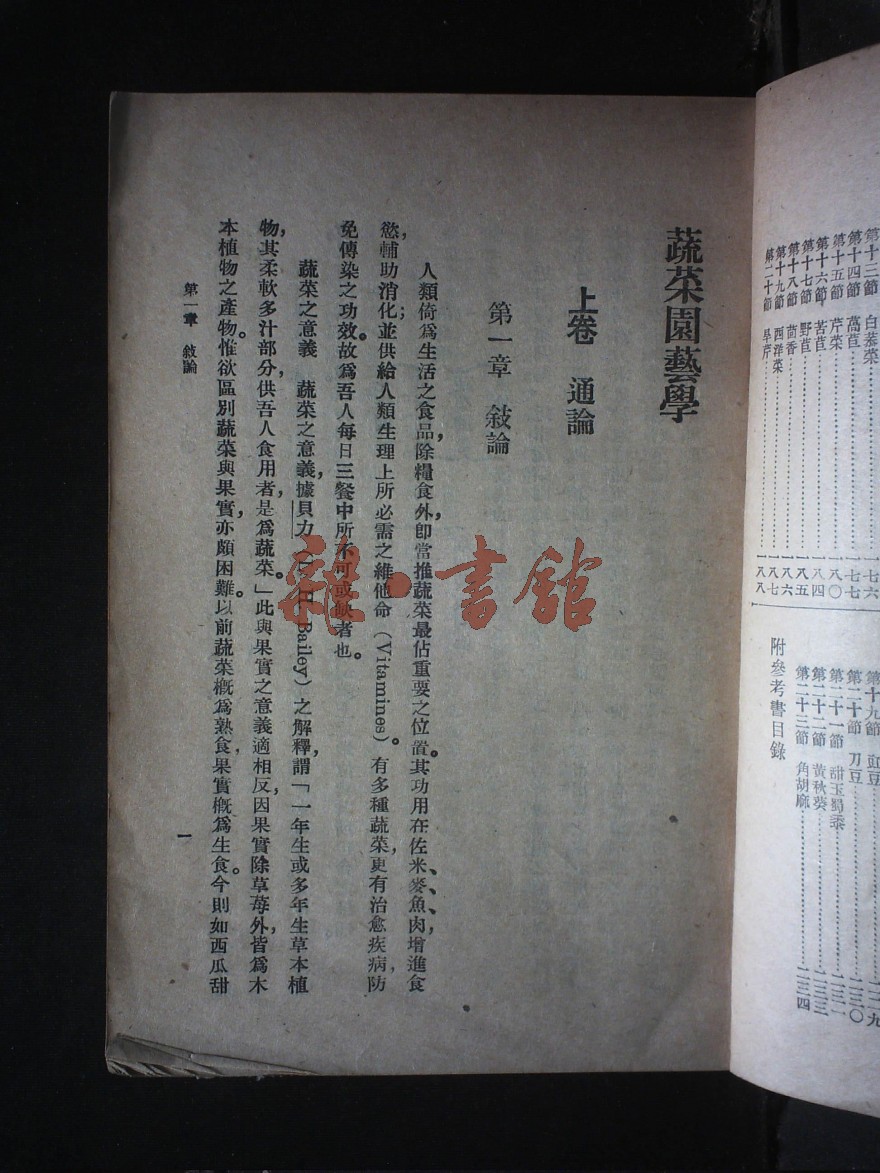 第十三節 白菾菜⋯⋯一七六
第十四節 萵苣⋯⋯一七七
第十五節 芹菜⋯⋯一八〇
第十六節 苦苣⋯⋯一八四
第十七節 野苣⋯⋯一八五
第十八節 茴香⋯⋯一八六
第十九節 西洋菜⋯⋯一八七
第二十節 旱芹⋯⋯一八八
第十九節 豇豆⋯⋯二二九
第二十節 刀豆⋯⋯二三〇
第二十一節 甜玉蜀黍⋯⋯二三一
第二十二節 黃秋葵⋯⋯二三三
第二十三節 角胡麻⋯⋯二三四
附參考書目錄
蔬菜園藝學
上卷 通論
第一章 敍論
人類倚爲生活之食品,除糧食外,卽當推蔬菜最佔重要之位置。其功用在佐米、麥、魚、肉,增進食
慾,輔助消化;並供給人類生理上所必需之維他命(Vitamines)。有多種蔬菜,更有治愈疾病,防
免傳染之功效。故爲吾人每日三餐中所不可或缺者也。
蔬菜之意義 蔬菜之意義,據貝力(L. H. Bailey)之解釋,謂「一年生或多年生草本植
物,其柔軟多汁部分,供吾人食用者,是爲蔬菜。」此與果實之意義適相反,因果實除草莓外,皆爲木
本植物之產物。惟欲區別蔬菜與果實,亦頗困難。以前蔬菜槪爲熟食,果實槪爲生食。今則如西瓜甜
第一章 敍論
一
雜·書館